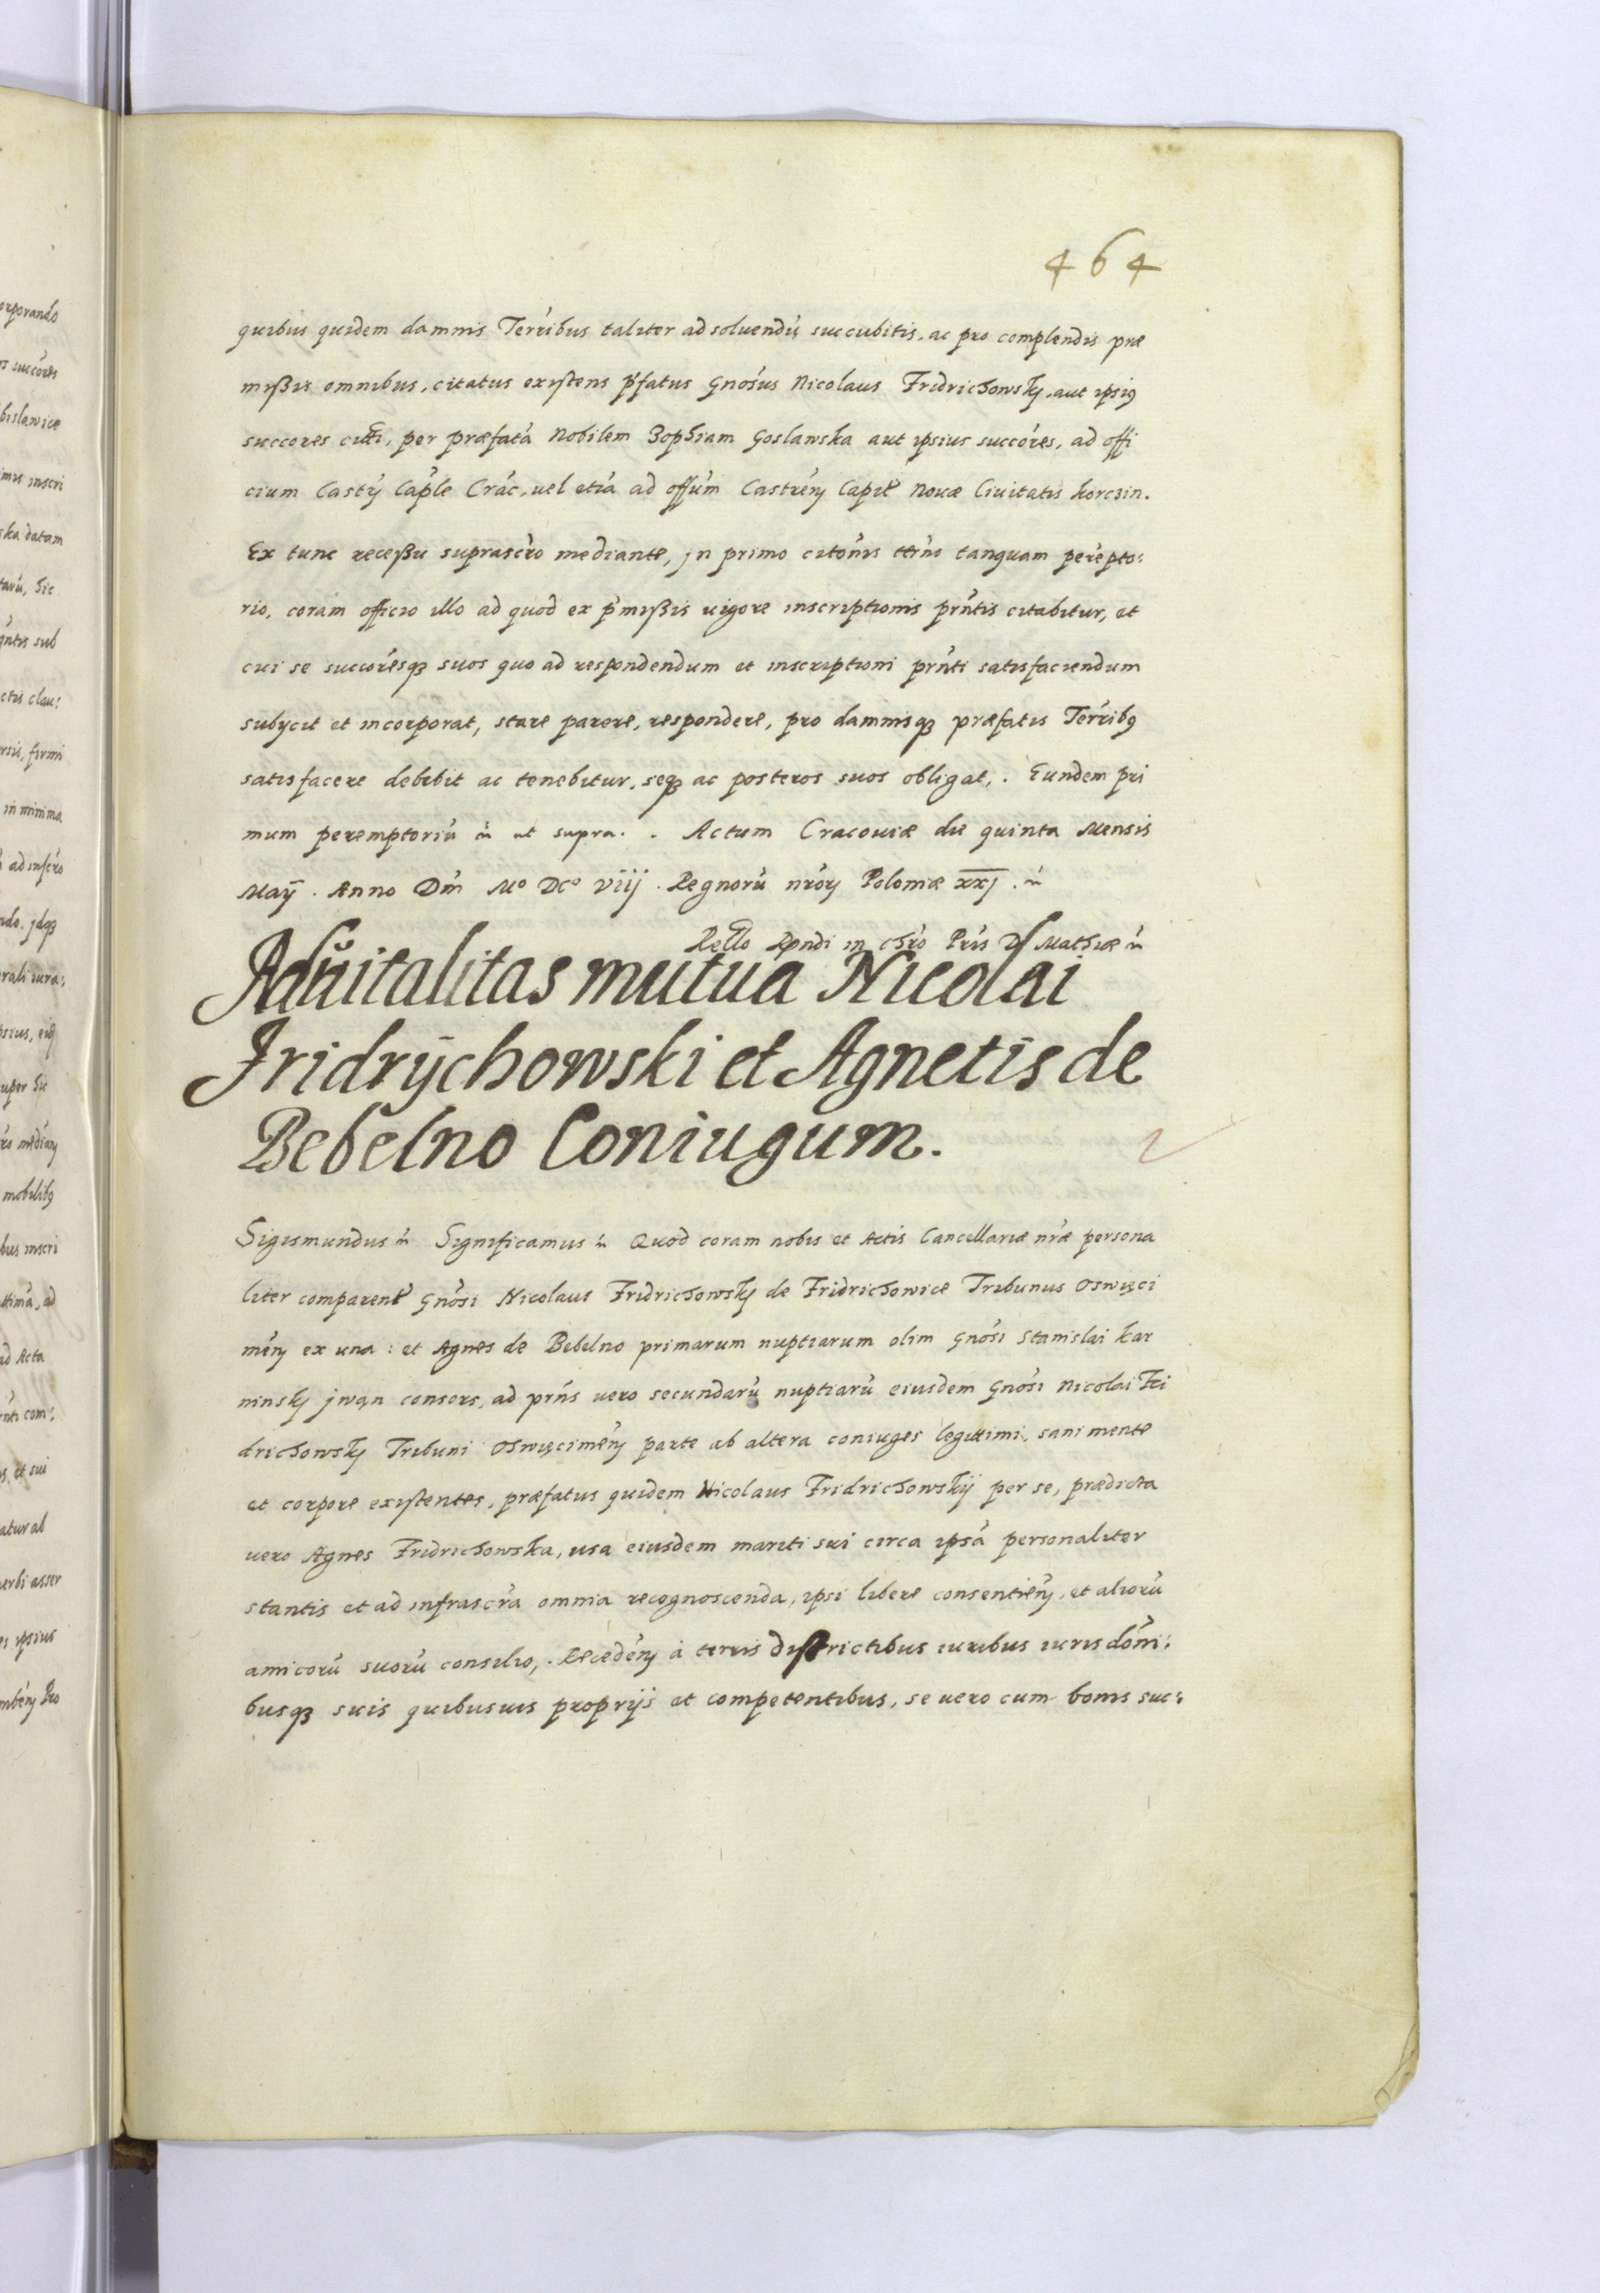 464
quibus quidem damnis Terribus taliter ad soluendũ succubitis, ac pro complendis præ
mißis omnibus, citatus existens p̃fatus Gnõsus Nicolaus Fridrichowskỹ, aut ipsiꝯ
succores per præfatã Nobilem Zophiam Goslawska aut ipsius succõres, ad offi
cium Castr̃ Cap̃le Crãc, uel etiã ad offũm Castrẽn Capit̃ Nouæ Ciuitatis korczin.
Ex tunc receßu suprascr̃o mediante, jn primo citõnis tt̃ino tanquam perẽpto:
rio, coram officio illo ad quod ex p̃mißis uigore inscriptionis prñtis citabitur, et
cui se succorẽsqꝫ suos quo ad respondendum et inscriptioni prñti satisfaciendum
subycit et incorporat, stare parere, respondere, pro damnisqꝫ præfatis Terribꝯ
satisfacere debebit ac tenebitur, seqꝫ ac posteros suos obligat,. Eundem pri
mum peremptoriũ ut supra. . Actum Cracouiæ die quinta Mensis
Maÿ . Anno Dñi Mº DCº viij . Regnorũ nrõrꝫ Poloniæ xxj .
Rello Rñdi in Chr̃o Pr̃is D Mathiæ
Aduitalitas mutua Nicolai
Fridrÿchowski et Agnetis de
Bebelno Coniugum.
Sigismundus Significamus Quod coram nobis et Actis Cancellariæ nr̃æ persona
liter comparent̃ Gnõsi Nicolaus Fridrichowskỹ de Fridrichowice Tribunus Oswięci
mẽn ex una : et Agnes de Bebelno primarum nuptiarum olim Gnõsi Stanislai kar
ninskỹ jwąn consors, ad prñs uero secundarũ nuptiarũ eiusdem Gnõsi Nicolai Fri
drichowskỹ Tribuni Oswięcimẽn parte ab altera coniuges legittimi, sani mente
et corpore existentes, præfatus quidem Nicolaus Fridrichowskij per se, prædicta
uero Agnes Fridrichowska, usa eiusdem mariti sui circa ipsã personaliter
stantis et ad infrascr̃a omnia recognoscenda, ipsi libere consentiẽn, et aliorũ
amicorũ suorũ consilio,. Recedẽn à terris districtibus iuribus iurisdõni:
busqꝫ suis quibusuis proprijs et competentibus, se uero cum bonis suc: